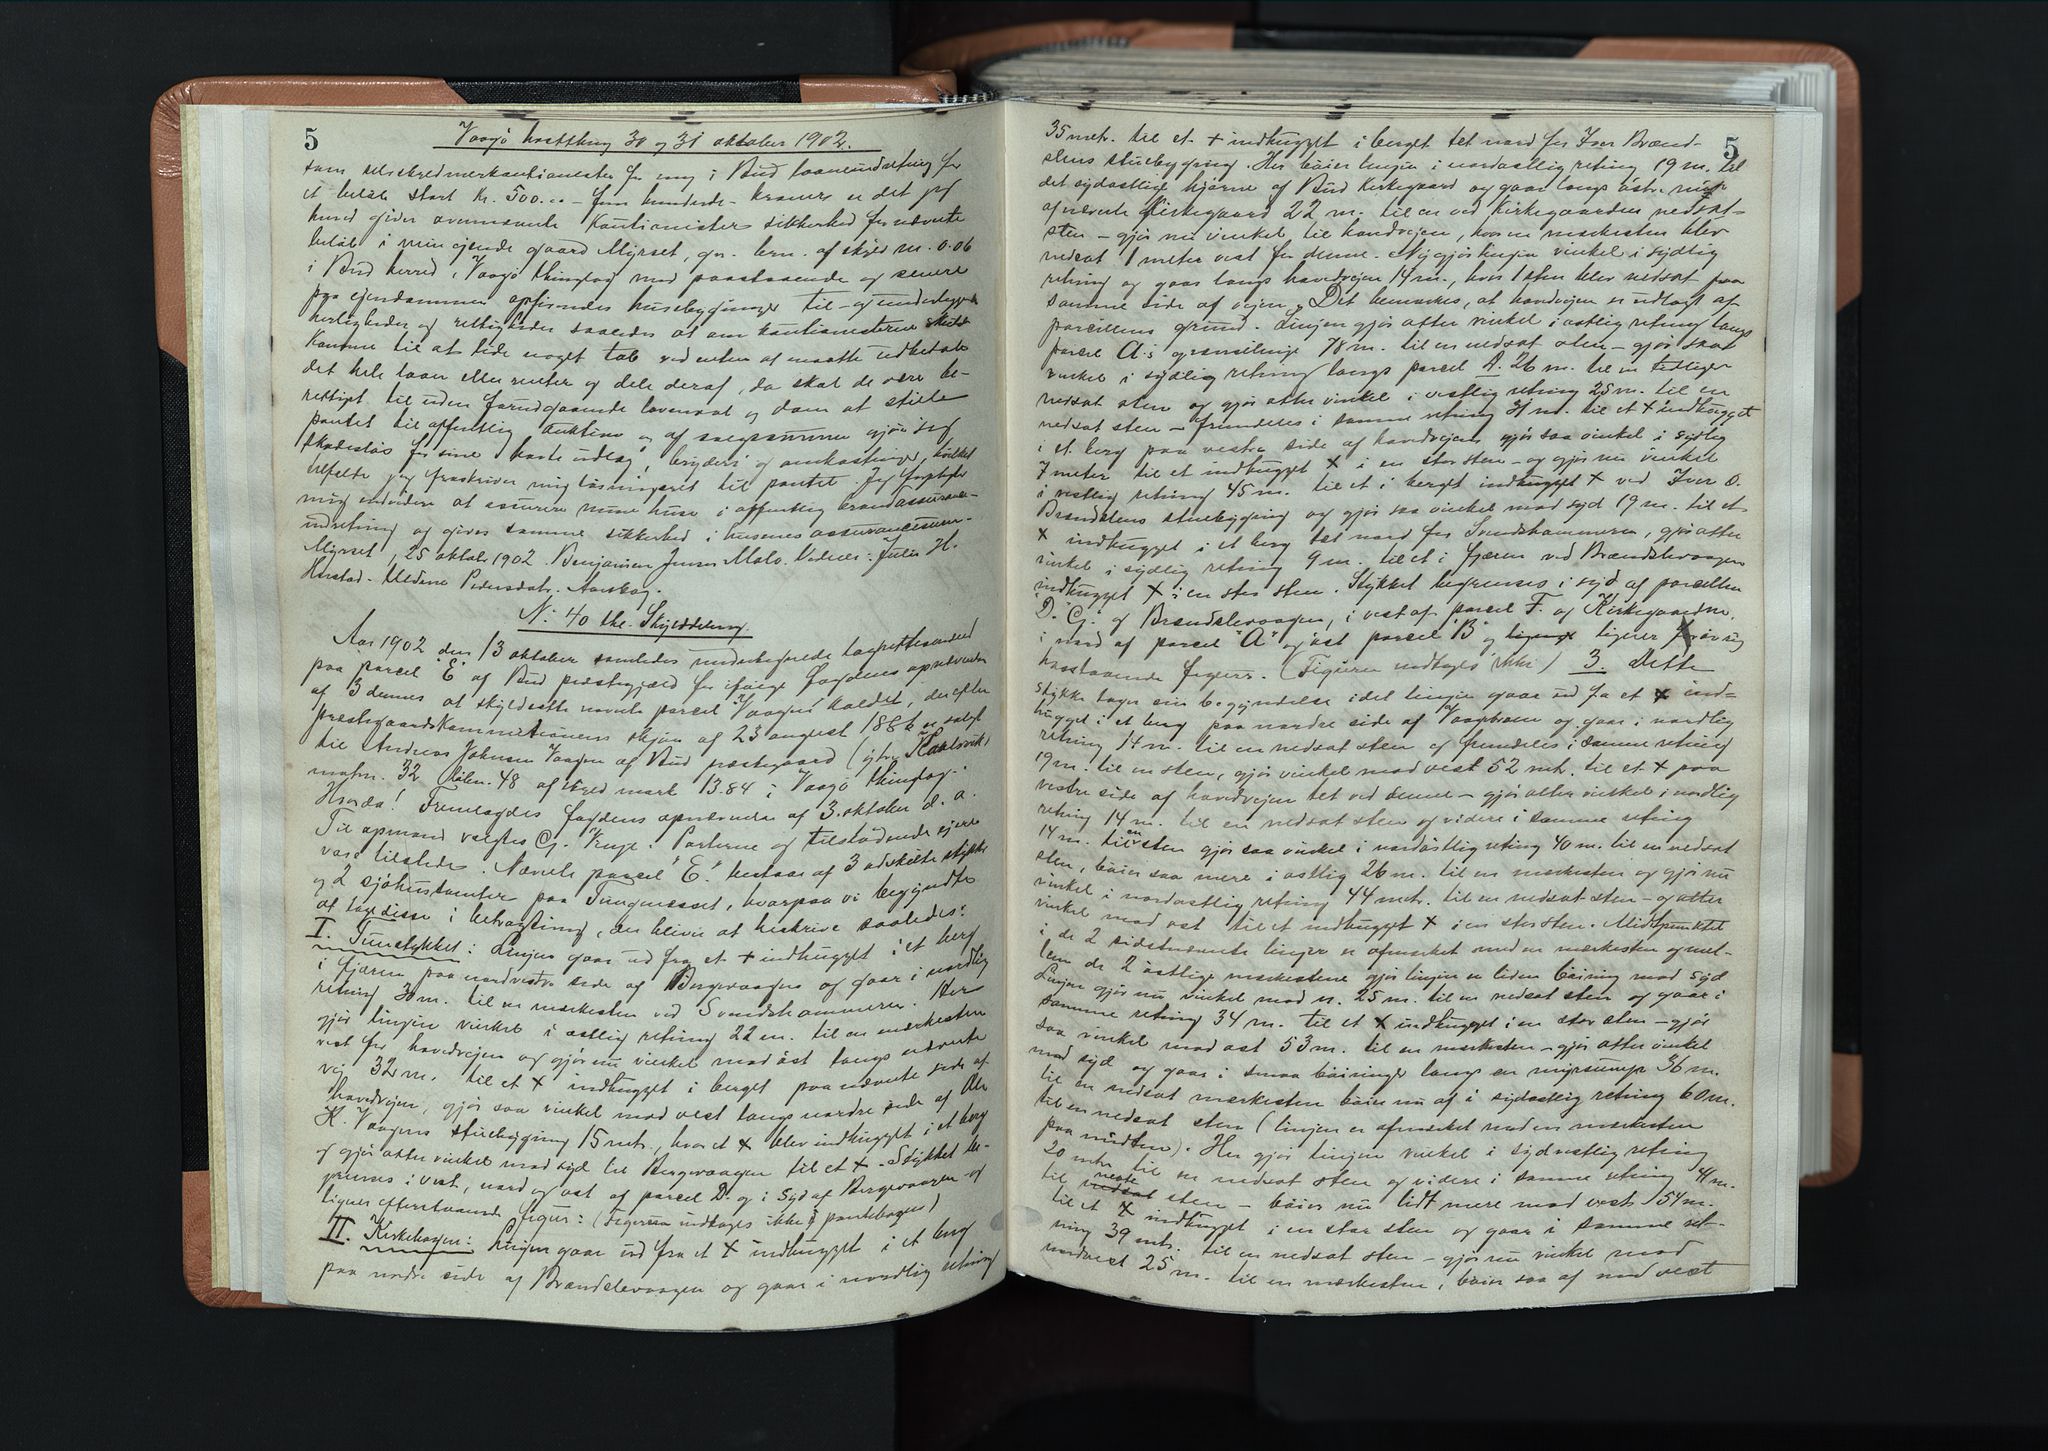 5
Vaagö höstthing 30 og 31 oktober 1902.
som selvskyldnerkautionister for mig i Bud laaneindretning for
et beløb stort Kr. 500.00 - fem hundrede - kroner er det jeg
herved giver ovennævnte kautionister sikkerhed for nævnte
beløb i min eiende gaard Myrset, gn. brn. af skyld m. 0.06
i Bud herred, Vaagö thinglag med paastaaende og senere
paa eiendommen opførendes husebygninger til- og underliggende
herligheder og rettigheder saaledes at om kautionisterne skulde
komme til at lide noget tab ved enten at maatte udbetale
det hele laan eller renter og dele deraf, da skal de være be-
rettiget til uden forudgaaende lovmaal og dom at stille
pantet til offentlig auktion og af salgssummen gjøre sig
skadesløs for sine havte udlæg, bryderi og omkostninger, i hvilket
tilfælde jeg fraskriver mig løsningsret til pantet. Jeg forpligter
mig endvidere at assurere mine huse i offentlig brandassurance-
indretning og giver samme sikkerhed i husenes assurancesum.
Myrset, 25 oktober 1902. Benjamin Jensen Malo. Vidner: Jules H.
Harstad. Uldene Pedersdatr. Aarskog.
No: 40 thl. Skylddeling.
Aar 1902 den 13 oktober samledes undertegnede lagrettesmænd
paa parcel "E" af Bud præstegjæld for ifølge fogdens opnævnelse
af 3 dennes at skyldsætte nævnte parcel "Vaagen" kaldet, der efter
præstegaardskommissionens skjøn af 23 august 1886 er solgt
til Andreas Johnsen Vaagen af Bud præstegaard (ytre Karlsvik)
matrn. 32 löbn. 48 af skyld mark 13.84 i Vaagö thinglag.
Hvorda! Fremlagdes fogdens opnævnelse af 3. oktober d. a.
Til opmand valgtes G. Venje. Parterne og tilstødende eiere
var tilstede. Nævnte parcel "E." bestaar af 3 adskilte stykker
og 2 sjöhustomter paa Tungenesset, hvorpaa vi begyndte
at tage disse i betragtning, der bliver at beskrive saaledes:
I. Tunstykket: Linjen gaar ud fra et + indhugget i et berg
i fjæren paa nordvestre side af Bergevaagen og gaar i nordlig
retning 30 m. til en mærkesten ved Svendshammeren. Her
gjør linjen vinkel i østlig retning 22 m. til en mærkesten
vest for hovedvejen og gjør nu vinkel mod öst langs nævnte
vej 32 m. til et + indhugget i berget paa nævnte side af
hovedvejen, gjør saa vinkel mod vest langs nordre side af Ole
H. Vaagens stuebygning 15 mtr., hvor et + blev indhugget i et berg
og gjør atter vinkel mod syd til Bergevaagen til et +. Stykket be-
grænses i vest, nord og øst af parcel D. og i syd af Bergevaagen og
ligner efterstaaende figur: (Figuren indtages ikke i pantebogen)
II. Kirkehagen: Linjen gaar ud fra et + indhugget i et berg
paa nordre side af Brændslevaagen og gaar i nordlig retning
5
35 mtr. til et + indhugget i berget tet nord for Iver Brænd-
slens stuebygning. Her böier linjen i nordøstlig retning 19 m. til
det sydøstlige hjørne af Bud Kirkegaard og gaar langs østre mur
af nævnte Kirkegaard 22 m. til en ved Kirkegaarden nedsat-
sten - gjør nu vinkel til hovedvejen, hvor en mærkesten blev
nedsat 1 meter vest for denne. Ny gjør linjen vinkel i sydlig
retning og gaar langs hovedvejen 14 m., hvor 1 sten blev nedsat paa
samme side af vejen. Det bemærkes, at hovedvejen er udlagt af
parcellens grund. Linjen gjør atter vinkel i østlig retning langs
parcel A.s grænselinje 78 m. til en nedsat sten - gjør saa
vinkel i sydlig retning langs parcel A. 26 m. til en tidligere
nedsat sten og gjør atter vinkel i vestlig retning 25 m. til en
nedsat sten - fremdeles i samme retning 31 m. til et + indhugget
i et berg paa vestre side af hovedvejen, gjør saa vinkel i sydlig
7 meter til et indhugget + i en stor sten - og gjør nu vinkel
i vestlig retning 45 m. til et i berget indhugget + ved Iver O.
Brændslens stuebygning og gjør saa vinkel mod syd 19 m. til et
+ indhugget i et berg tet nord for Svendshammeren, gjør atter
vinkel i sydlig retning 9 m. til et i fjæren ved Brændslevaagen
indhugget + i en stor sten. Stykket begrænses i syd af parcellen
"D." G. og Brændslevaagen, i vest af parcel F. og Kirkegaarden.
i nord af parcel "A" og øst parcel "B" og ligner
hosstaaende figur. (Figuren indtages ikke) 3. Dette
stykke tager sin begyndelse idet linjen gaar ud fra et + ind-
hugget i et berg paa nordre side af Vaagebroen og gaar i nordlig
retning 14 m. til en nedsat sten og fremdeles i samme retning
19 m. til en sten, gjør vinkel mod vest 52 mtr. til et + paa
vestre side af hovedvejen tet ved denne - gjør atter vinkel i nordlig
retning 14 m. til en nedsat sten og videre i samme retning
14 m. til en sten gjør saa vinkel i nordøstlig retning 40 m. til en nedsat
sten, böier saa mere i østlig 26 m. til en mærkesten og gjør nu
vinkel i nordøstlig retning 44 mtr. til en nedsat sten - og atter
vinkel mod øst til et indhugget + i en stor sten. Midtpunktet
i de 2 sidstnævnte linjer er afmerket med en mærkesten og mel-
lem de 2 østlige mærkestene gjør linjen en liden böining mod syd
Linjen gjør nu vinkel mod n. 25 m. til en nedsat sten og gaar i
samme retning 34 m. til et + indhugget i en stor sten - gjør
saa vinkel mod øst 53 m. til en mærkesten - gjør atter vinkel
mod syd og gaar i smaa böininger langs en myrsump 36 m.
til en nedsat mærkesten böier nu af i sydøstlig retning 60 m.
til en nedsat sten (linjen er afmerket med en mærkesten
paa midten). Her gjør linjen vinkel i sydvestlig retning
20 mtr. til en nedsat sten og videre i samme retning 41 m.
til næste sten - böier nu lidt mere mod vest 54 m.
til et + indhugget i en stor sten og gaar i samme ret-
ning 39 mtr. til en nedsat sten - gjør nu vinkel mod
nordvest 25 m. til en mærkesten, böier saa af mod vest